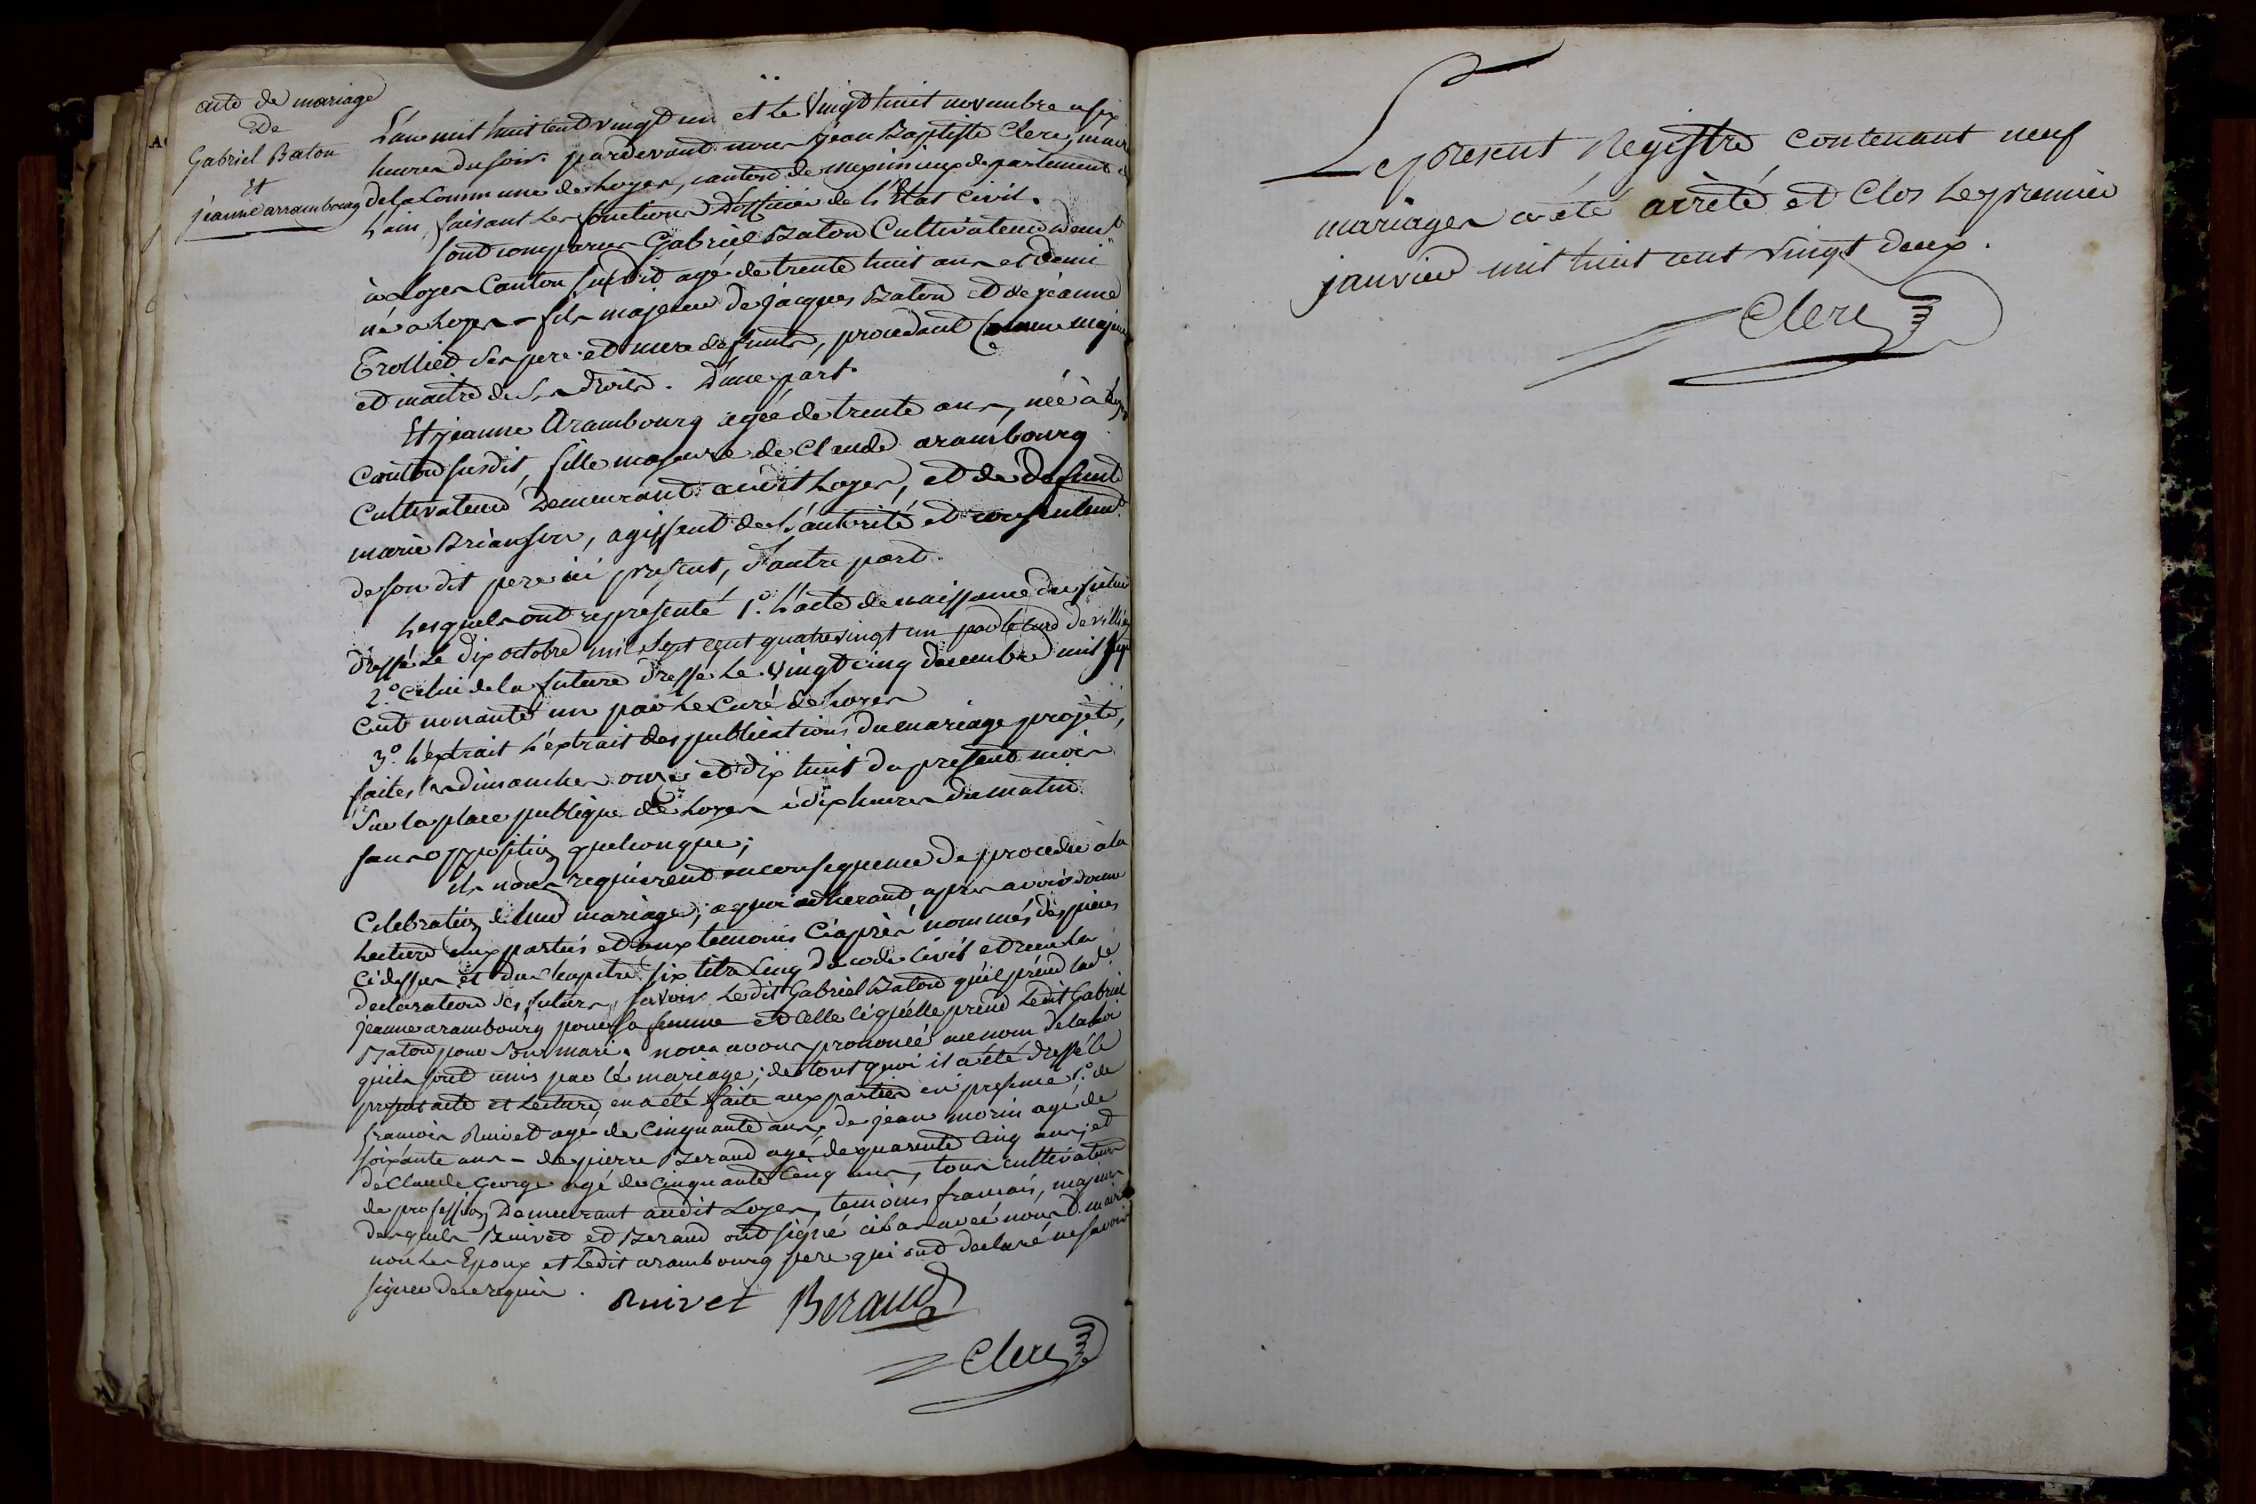 acte de mariage
De
Gabriel Baton
et
jeanne arrambourg
L'an mil huit cent vingt un et le vingt huit novembre a six
heures du soir. pardevant nous jean Baptiste Clerc, maire
de la Commune de Loyes, canton de meximieux departement de
L'ain, faisant les fonctions D'officier de L'Etat Civil.
sont comparus Gabriel Baton Cultivateur demt
à Loyes Canton susdit agé de trente huit ans et demi
né a Loyes - fils majeur de jacques Baton et de jeanne
Trolliet ses pere et mere defunts, procedant Comme majeur
et maitre de ses droits. D'une part.
Et jeanne Arambourg agée de trente ans, née à Loyes
Canton susdit, fille majeure de Claude arambourg
Cultivateur Demeurant audit Loyes, et de Defunte
marie Brianson, agissant de L'autorité et consentemt
de son dit pere ici présent, d'autre part.
Lesquels ont representé 1.° L'acte de naissance du futur
Dressé Le dix octobre mil sept cent quatre vingt un par le curé de villieu
2.° Celui de la future Dressé Le vingt cinq decembre mil sept
Cent nonante un par Le Curé de Loyes
3.° L'extrait L'extrait des publications du mariage projeté,
faites les dimanches onze et dix huit du present mois
Sur la place publique de Loyes à dix heures du matin.
sans opposition quelconque;
ils nous requierent en consequence de proceder à la
Celebration de leur mariage; a quoi adherant, après avoir donné
Lecture aux parties et aux temoins Ci après nommés des pieces
Ci dessus et du Chapitre six titre Cinq du code Civil et reçu la
declaration des futurs, savoir Ledit Gabriel Baton qu'il prend lade
jeanne arambourg pour sa femme et Celle ci qu'elle prend Ledit Gabriel
Baton pour Son mari. nous avons prononcé au nom de la loi
qu'ils sont unis par le mariage; de tout quoi il a été dressé le
present acte et Lecture en a été faite aux parties en presence 1.° de
francois Ruivet agé de Cinquante ans, de jean morin agé de
soixante ans - de pierre Beraud agé de quarente Cinq ans, et
de Claude George agé de Cinquante Cinq ans, tous cultivateurs
de profession Demeurant audit Loyes, temoins francais, majeurs
desquels Ruivet et Beraud ont signé ci bas avec nous d. maire
non Les Epoux et Ledit arambourg pere qui ont declaré ne savoir
signer de ce requis.
Ruivet Beraud
Clerc
Le present Registre contenant neuf
mariages a été arrêté et Clos Le premier
janvier mil huit cent vingt deux.
Clerc